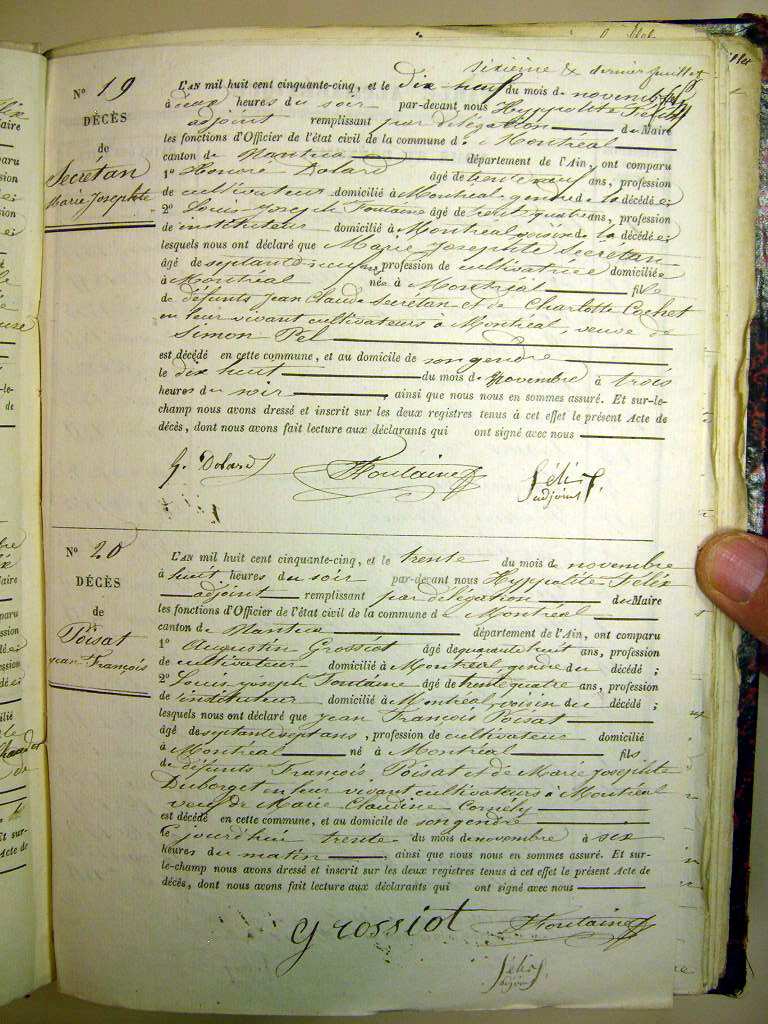 sixième & dernier feuillet
Nº 19
DÉCÈS
de
Secrétan
Marie Josephte
L'AN mil huit cent cinquante-cinq, et le dix neuf du mois de novembre
à deux heures du soir par-devant nous Hyppolite Félix
adjoint remplissant par délégation du Maire
les fonctions d'Officier de l'état civil de la commune de Montréal
canton de Nantua département de l'Ain, ont comparu
1º Honoré Dolard âgé de trente neuf ans, profession
de cultivateur domicilié à Montréal gendre de la décédée;
2º Louis Joseph Foulaine âgé de trente quatre ans, profession
de instituteur domicilié à Montréal voisin de la décédée;
lesquels nous ont déclaré que Marie Josephte Secrétan
âgé de septante neuf ans, profession de cultivatrice domiciliée
à Montréal née à Montréal fille
de défunts Jean Claude Secrétan et de Charlotte Cochet
en leur vivant cultivateurs à Montréal, veuve de
Simon Pel
est décédé en cette commune, et au domicile de son gendre
le dix huit du mois de Novembre à trois
heures du soir, ainsi que nous nous en sommes assuré. Et sur-le-
champ nous avons dressé et inscrit sur les deux registres tenus à cet effet le présent Acte de
décès, dont nous avons fait lecture aux déclarants qui ont signé avec nous
G. Dolard Foulaine Félix
adjoint
Nº 20
DÉCÈS
de
Poisat
Jean François
L'AN mil huit cent cinquante-cinq, et le trente du mois de novembre
à huit heures du soir par-devant nous Hyppolite Félix
adjoint remplissant par délégation du Maire
les fonctions d'Officier de l'état civil de la commune de Montréal
canton de Nantua département de l'Ain, ont comparu
1º Augustin Grossiot âgé de quarante huit ans, profession
de cultivateur domicilié à Montréal, gendre du décédé;
2º Louis Joseph Foulaine âgé de trente quatre ans, profession
de instituteur domicilié à Montréal, voisin du décédé;
lesquels nous ont déclaré que Jean François Poisat
âgé de septante sept ans, profession de cultivateur domicilié
à Montréal né à Montréal fils
de défunts François Poisat et de Marie Josephte
Duborget en leur vivant cultivateurs à Montréal
veuf de Marie Claudine Cornely
est décédé en cette commune, et au domicile de son gendre
ce jourd'hui trente du mois de novembre à six
heures du matin, ainsi que nous nous en sommes assuré. Et sur-
le-champ nous avons dressé et inscrit sur les deux registres tenus à cet effet le présent Acte de
décès, dont nous avons fait lecture aux déclarants qui ont signé avec nous
Grossiot Foulaine
Félix
adjoint